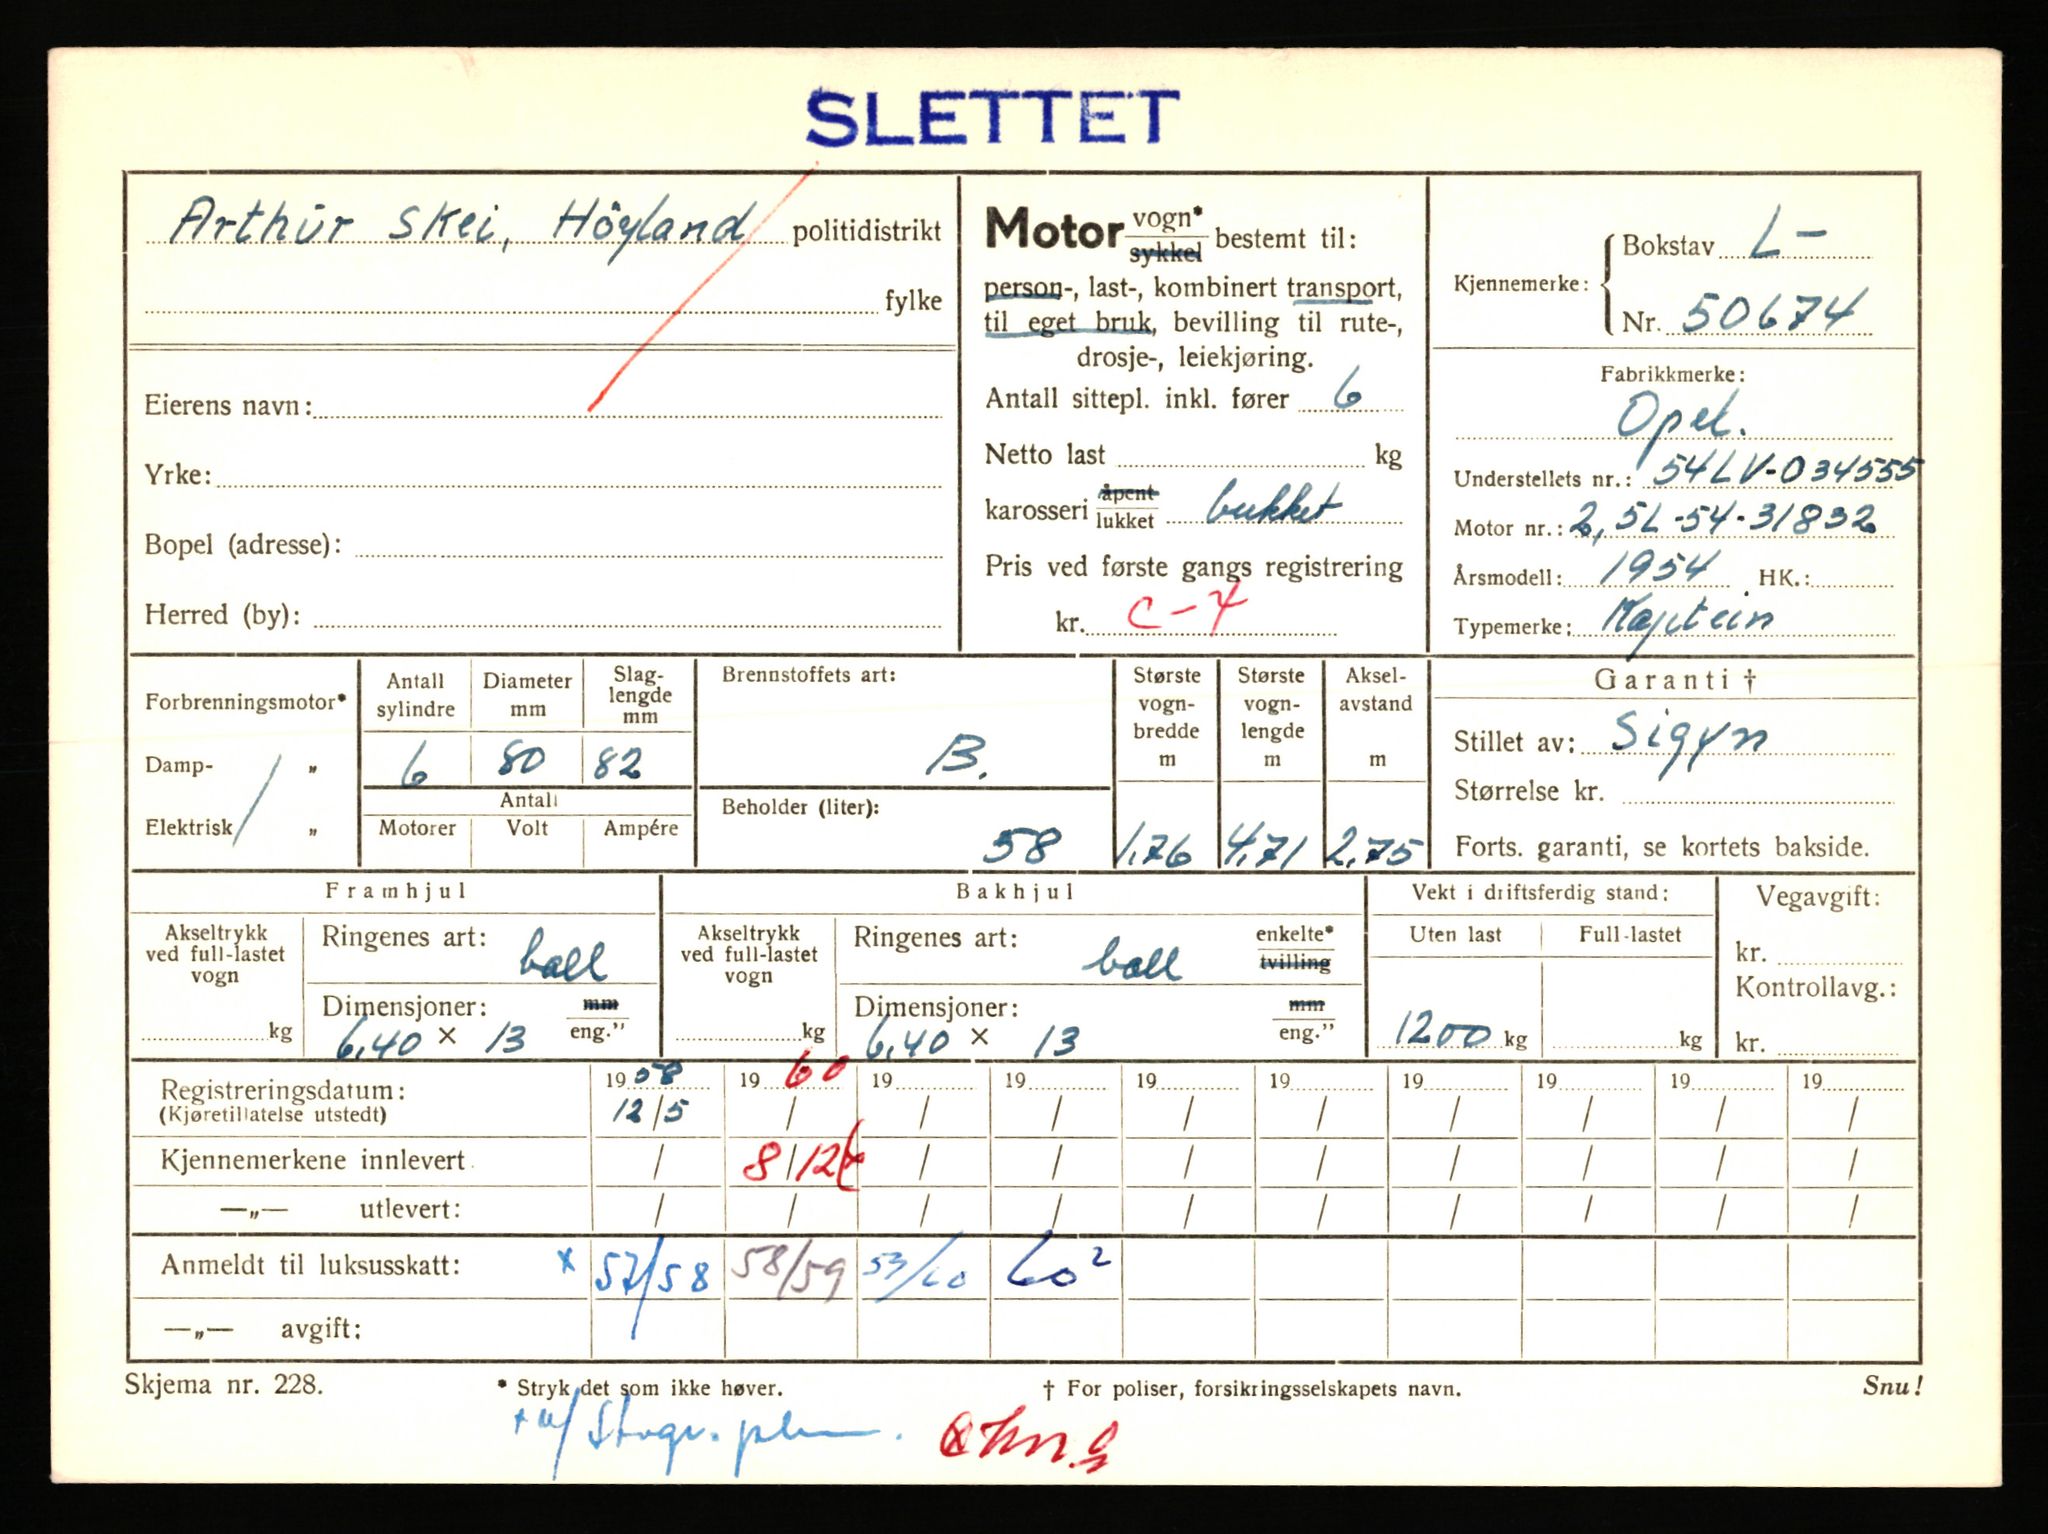 SLETTET
Arthur Skei, Höyland politidistrikt
fylke
Eierens navn:
Yrke:
Bopel (adresse):
Herred (by):
Motor vogn* sykkel bestemt til:
person-, last-, kombinert transport,
til eget bruk, bevilling til rute-,
drosje-, leiekjøring.
Antall sittepl. inkl. fører 6
Netto last kg
karosseri åpent lukket lukket
Pris ved første gangs registrering
kr. C-4
Kjennemerke: Bokstav L-
Nr. 50674
Fabrikkmerke:
Opel.
Understellets nr.: 54LV-034555
Motor nr.: 2,5L-54-31832
Årsmodell: 1954 HK.:
Typemerke: Kaptein
Forbrenningsmotor*
Damp- "
Elektrisk "
Antall sylindre Diameter mm Slag-lengde mm
6 80 82
Antall
Motorer Volt Ampére
Brennstoffets art:
B.
Beholder (liter):
58
Største vogn-bredde m Største vogn-lengde m Aksel-avstand m
1,76 4,71 2,75
Garanti †
Stillet av: Sigyn
Størrelse kr.
Forts. garanti, se kortets bakside.
Framhjul
Akseltrykk ved full-lastet vogn
kg
Ringenes art: ball
Dimensjoner: mm
6,40 × 13 eng."
Bakhjul
Akseltrykk ved full-lastet vogn
kg
Ringenes art: ball enkelte* tvilling
Dimensjoner: mm
6,40 × 13 eng."
Vekt i driftsferdig stand:
Uten last Full-lastet
1200 kg kg
Vegavgift:
kr.
Kontrollavg.:
kr.
Registreringsdatum: 1958 1960 19 19 19 19 19 19 19 19
(Kjøretillatelse utstedt) 12/5 / / / / / / / / /
Kjennemerkene innlevert / 8/12 / / / / / / / /
—"— utlevert: / / / / / / / / / /
Anmeldt til luksusskatt: x 57/58 58/59 59/60 60²
—"— avgift:
Skjema nr. 228. * Stryk det som ikke høver. † For poliser, forsikringsselskapets navn. Snu!